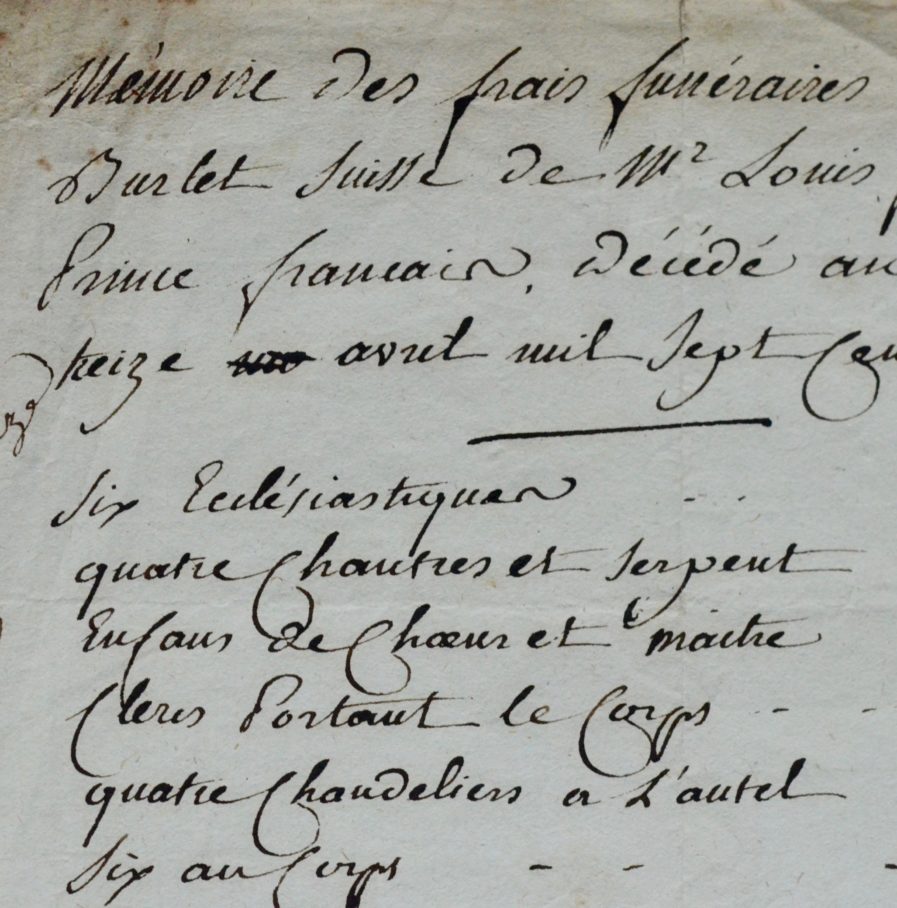 Mémoire des frais funéraires
Burlet Suisse de Mr Louis
Prince francais, décédé au
treize avril mil Sept Cen
Six Ecclésiastiques - -
quatre Chantres et Serpent
Enfans de Chœur et maitre
Clercs Portant le Corps - -
quatre Chandeliers a L'autel
Six au Corps - - -